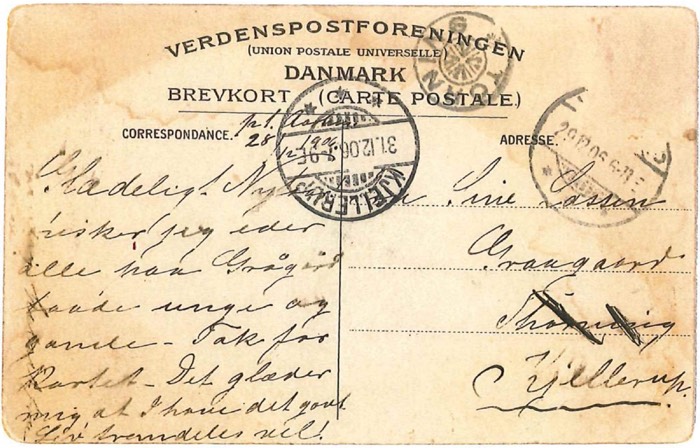 VERDENSPOSTFORENINGEN
(UNION POSTALE UNIVERSELLE)
DANMARK
BREVKORT (CARTE POSTALE.)
CORRESPONDANCE.
ADRESSE.
p.t.
28/12 1906
31.12.06
KJELLERUP
Glædeligt Nytår
ønsker jeg eder
alle paa Grågård
baade unge og
gamle - Tak for
Kortet - Det glæder
mig at I have det godt
Lev fremdeles vel!
Sine Lassen
Graagaard
Thorning
Kjellerup.